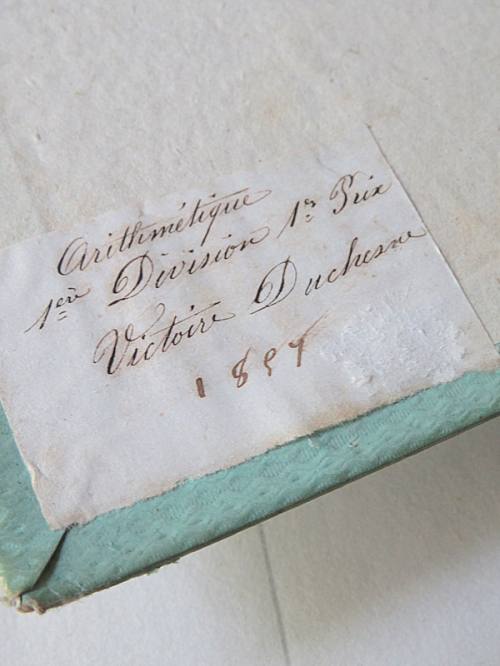 Arithmétique
1ère Division 1er Prix
Victoire Duchesne
1857